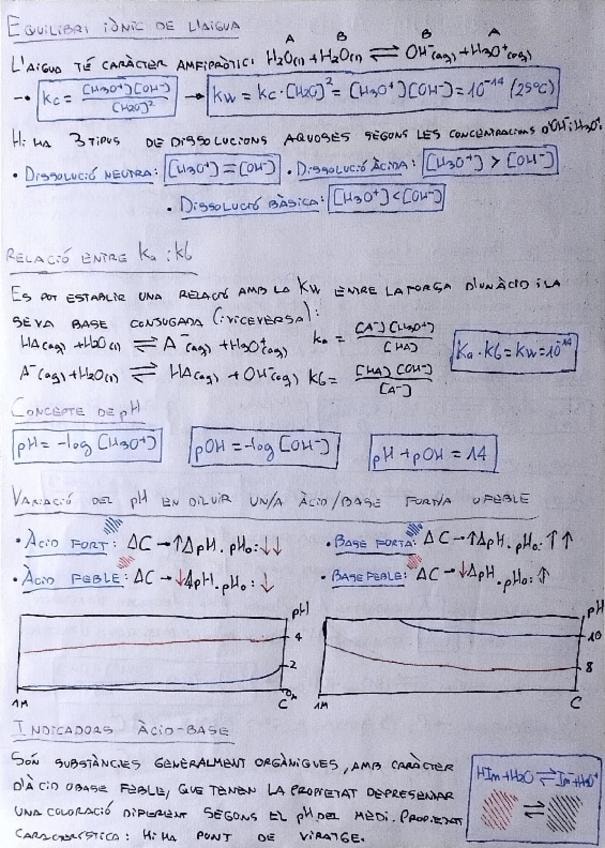 EQUILIBRI IÒNIC DE L'AIGUA
A B B A
L'AIGUA TÉ CARÀCTER AMFIPRÒTIC: H2O(l) + H2O(l) ⇌ OH-(aq) + H3O+(aq)
→ Kc = [H3O+][OH-] / [H2O]^2 → Kw = Kc·[H2O]^2 = [H3O+][OH-] = 10^-14 (25ºC)
HI HA 3 TIPUS DE DISSOLUCIONS AQUOSES SEGONS LES CONCENTRACIONS D'OH- i H3O+:
• DISSOLUCIÓ NEUTRA: [H3O+] = [OH-] • DISSOLUCIÓ ÀCIDA: [H3O+] > [OH-]
• DISSOLUCIÓ BÀSICA: [H3O+] < [OH-]
RELACIÓ ENTRE Ka i Kb
ES POT ESTABLIR UNA RELACIÓ AMB LA KW ENTRE LA FORÇA D'UN ÀCID i LA
SEVA BASE CONJUGADA (i VICEVERSA):
HA(aq) + H2O(l) ⇌ A-(aq) + H3O+(aq) Ka = [A-][H3O+] / [HA]
Ka·Kb = Kw = 10^-14
A-(aq) + H2O(l) ⇌ HA(aq) + OH-(aq) Kb = [HA][OH-] / [A-]
CONCEPTE DE pH
pH = -log [H3O+] pOH = -log [OH-] pH + pOH = 14
VARIACIÓ DEL pH EN DILUIR UN/A ÀCID/BASE FORT/A O FEBLE
• ÀCID FORT: ΔC → ↑ΔpH. pH0: ↓↓ • BASE FORTA: ΔC → ↑ΔpH. pH0: ↑↑
• ÀCID FEBLE: ΔC → ↓ΔpH. pH0: ↓ • BASE FEBLE: ΔC → ↓ΔpH. pH0: ↑
pH pH
4 10
2 8
0
1M C 1M C
INDICADORS ÀCID-BASE
SÓN SUBSTÀNCIES GENERALMENT ORGÀNIQUES, AMB CARÀCTER
D'ÀCID O BASE FEBLE, QUE TENEN LA PROPIETAT DE PRESENTAR
UNA COLORACIÓ DIFERENT SEGONS EL pH DEL MEDI. PROPIETAT
CARACTERÍSTICA: HI HA PUNT DE VIRATGE.
HIn + H2O ⇌ In- + H3O+
⇌